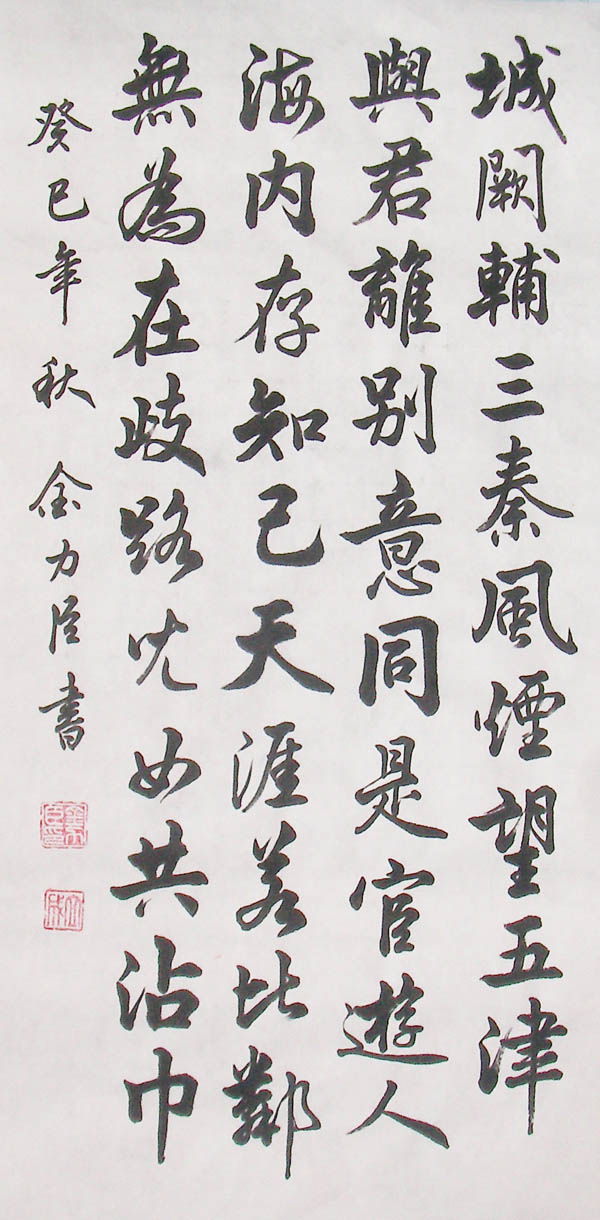 城闕輔三秦風煙望五津
與君離別意同是官遊人
海内存知己天涯若比鄰
無為在歧路児女共沾巾
癸巳年秋金力臣書